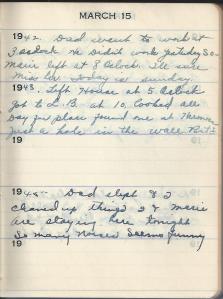 MARCH 15
1942. Dad went to work at
3 oclock. He Didn't work yesterday So
marie left at 8 oclock. I'll sure
miss her. Today is sunday.
1943. Left House at 5 oclock
got to L.B. at 10. Looked all
Day for place found one at
Just a hole in the wall.
19
1945- Dad slept & I
cleaned up things I & marie
are staying here tonight
So many noises Seems funny
19